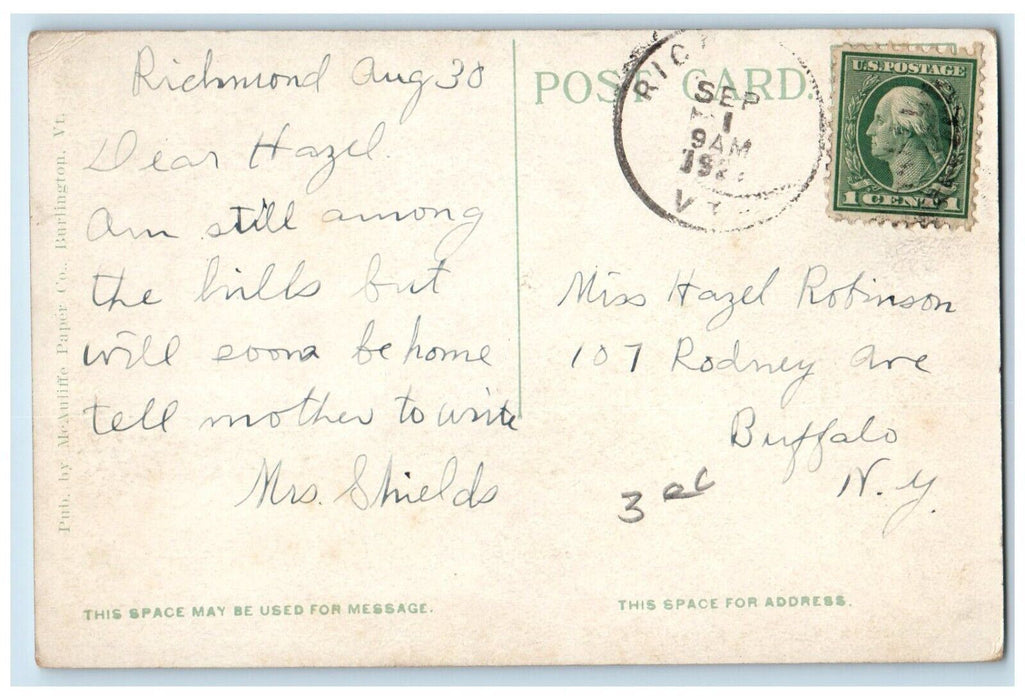 Richmond Aug 30
Dear Hazel.
Am still among
the hills but
will soon be home
tell mother to write
Mrs. Shields
THIS SPACE MAY BE USED FOR MESSAGE.
Pub. by McAuliffe Paper Co., Burlington, Vt.
POST CARD.
RIC
SEP
1
9AM
VT
U.S. POSTAGE
1 CENT 1
Miss Hazel Robinson
107 Rodney Ave
Buffalo
N.Y.
3
THIS SPACE FOR ADDRESS.